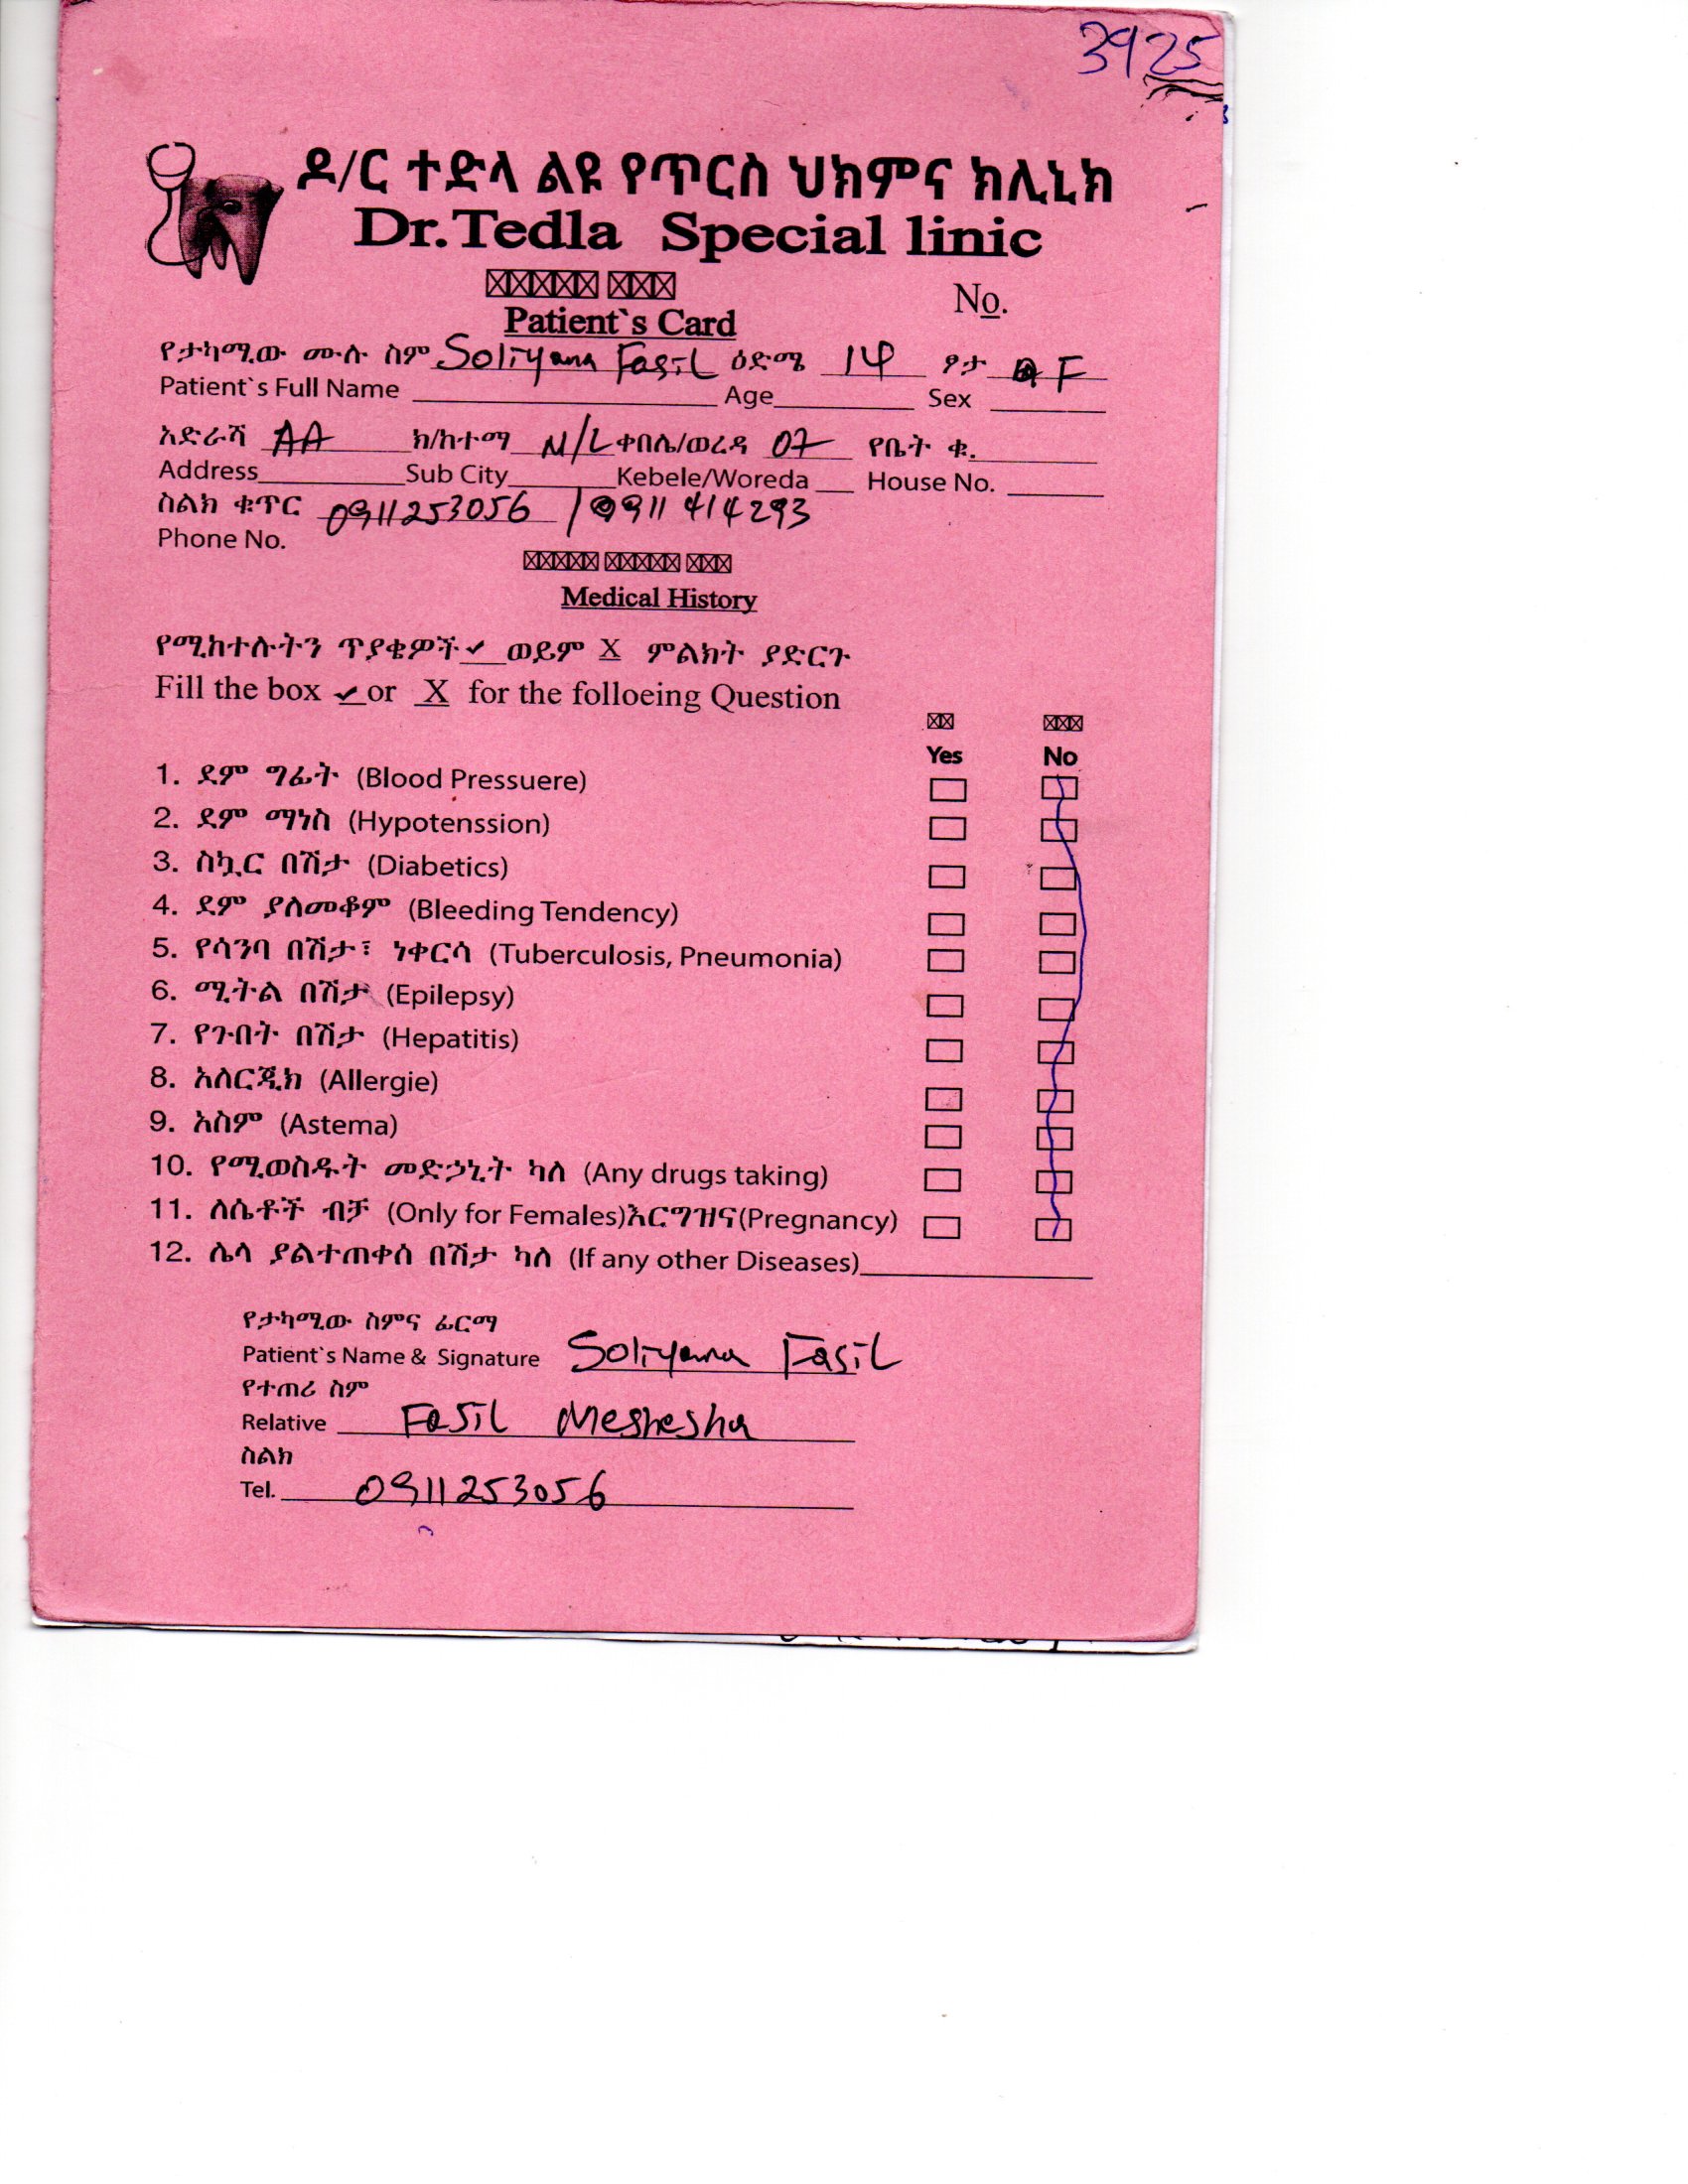 3925
ዶ/ር ተድላ ልዩ የጥርስ ህክምና ክሊኒክ
Dr.Tedla Special linic
No.
Patient`s Card
የታካሚው ሙሉ ስም Soliyana Fasil ዕድሜ 14 ፆታ F
Patient`s Full Name Age Sex
አድራሻ AA ክ/ከተማ N/L ቀበሌ/ወረዳ 07 የቤት ቁ.
Address Sub City Kebele/Woreda House No.
ስልክ ቁጥር 0911253056 / 0911 414293
Phone No.
Medical History
የሚከተሉትን ጥያቄዎች ✓ ወይም X ምልክት ያድርጉ
Fill the box ✓ or X for the folloeing Question
Yes No
1. ደም ግፊት (Blood Pressuere)
2. ደም ማነስ (Hypotenssion)
3. ስኳር በሽታ (Diabetics)
4. ደም ያለመቆም (Bleeding Tendency)
5. የሳንባ በሽታ፣ ነቀርሳ (Tuberculosis, Pneumonia)
6. ሚትል በሽታ (Epilepsy)
7. የጉበት በሽታ (Hepatitis)
8. አለርጂክ (Allergie)
9. አስም (Astema)
10. የሚወስዱት መድኃኒት ካለ (Any drugs taking)
11. ለሴቶች ብቻ (Only for Females)እርግዝና(Pregnancy)
12. ሌላ ያልተጠቀሰ በሽታ ካለ (If any other Diseases)
የታካሚው ስምና ፊርማ
Patient`s Name & Signature Soliyana Fasil
የተጠሪ ስም
Relative Fasil Meshesha
ስልክ
Tel. 0911253056